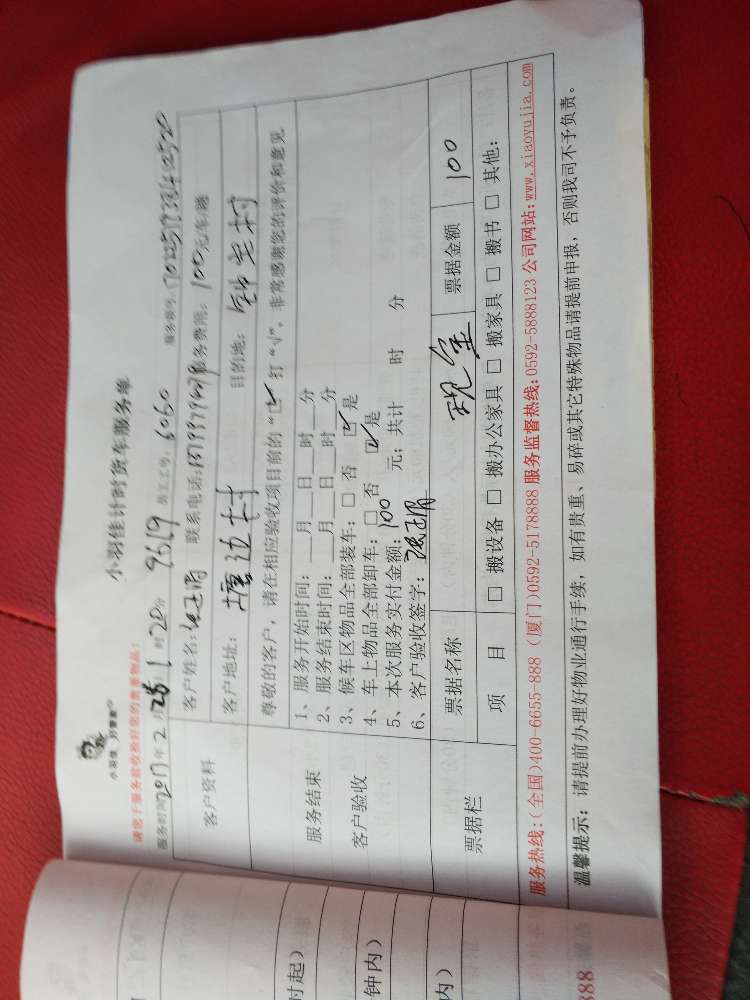 小羽佳计时货车服务单
小羽佳
请您于服务前收拾好您的贵重物品！
服务时间:2017年2月28日1时20分 9619 员工工号: 6060 服务单号:
客户资料
客户姓名: 联系电话: 服务费用: 100元/车/趟
客户地址: 塘边村 目的地:
尊敬的客户，请在相应验收项目前的“□”打“√”，非常感谢您的评价和意见
服务结束
客户验收
1、服务开始时间：___月___日___时___分
2、服务结束时间：___月___日___时___分
3、候车区物品全部装车：□ 否 ☑是
4、车上物品全部卸车：□ 否 ☑是
5、本次服务实付金额：100 元；共计 时 分
6、客户验收签字：
票据栏
票据名称 现金 票据金额 100
项 目 □ 搬设备 □ 搬办公家具 □ 搬家具 □ 搬书 □ 其他：
服务热线：(全国)400-6655-888 (厦门)0592-5178888 服务监督热线：0592-5888123 公司网站：www.xiaoyujia.com
温馨提示：请提前办理好物业通行手续，如有贵重、易碎或其它特殊物品请提前申报，否则我司不予负责。
时起)
钟内)
内)
888